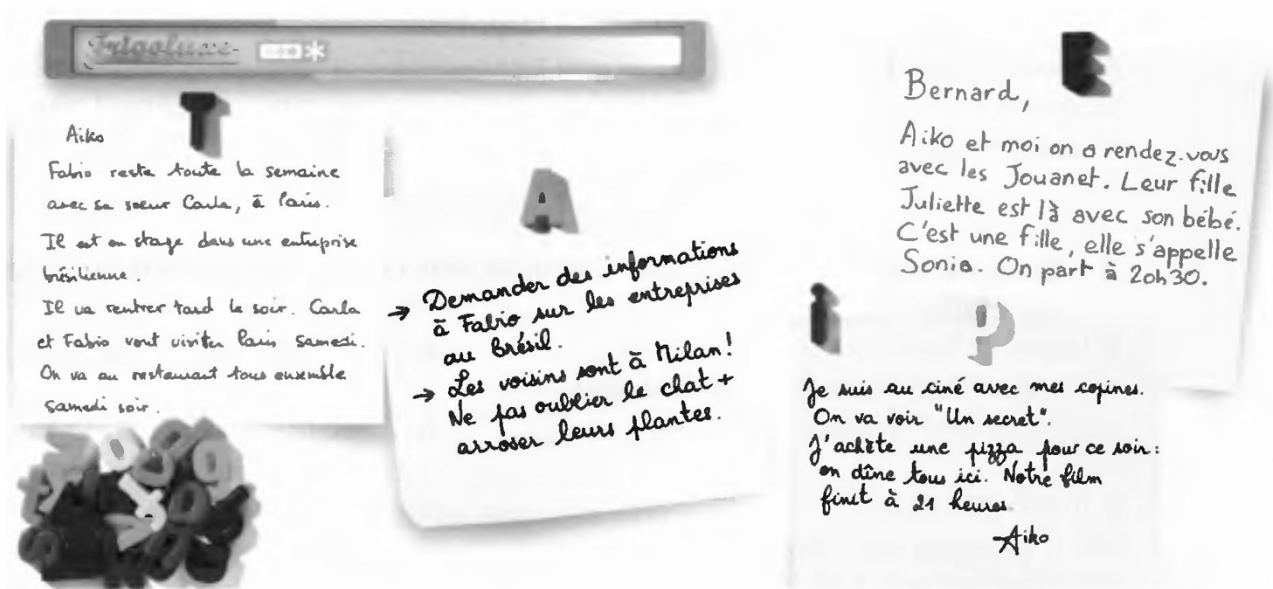 Frigoluxe
Aiko
Fabio reste toute la semaine
avec sa soeur Carla, à Paris.
Il est en stage dans une entreprise
brésilienne.
Il va rentrer tard le soir. Carla
et Fabio vont visiter Paris samedi.
On va au restaurant tous ensemble
samedi soir.
→ Demander des informations
à Fabio sur les entreprises
au Brésil.
→ Les voisins sont à Milan!
Ne pas oublier le chat +
arroser leurs plantes.
Bernard,
Aiko et moi on a rendez-vous
avec les Jouanet. Leur fille
Juliette est là avec son bébé.
C'est une fille, elle s'appelle
Sonia. On part à 20h30.
Je suis au ciné avec mes copines.
On va voir "Un secret".
J'achète une pizza pour ce soir:
on dîne tous ici. Notre film
finit à 21 heures.
Aiko